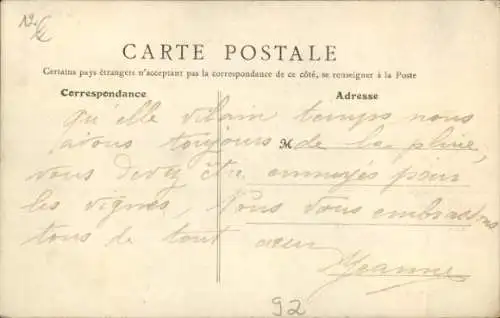 12/
CARTE POSTALE
Certains pays étrangers n'acceptant pas la correspondance de ce côté, se renseigner à la Poste
Correspondance Adresse
Qu'elle vilain temps nous
avons toujours M de la pluie,
vous devez être ennuyés pour
les vignes, Nous vous embrassons
tous de tout cœur
Jeanne
92